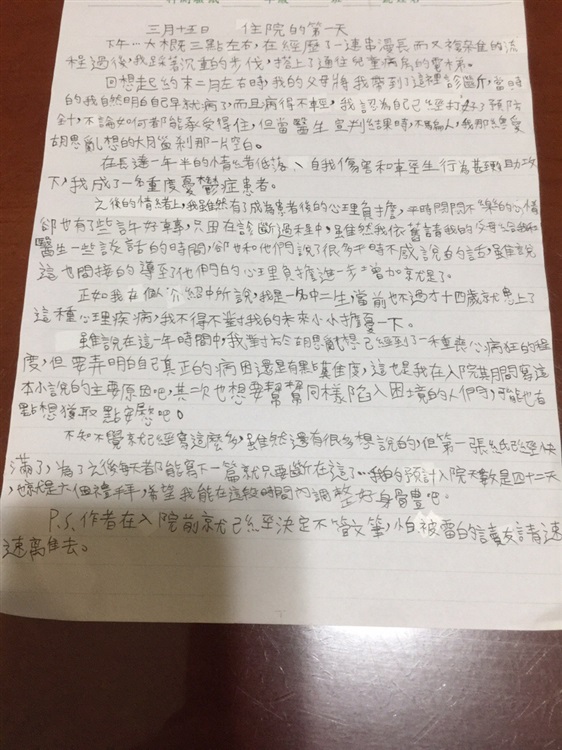 三月十五日 住院的第一天
下午…大概三點左右,在經歷了一連串漫長而又複雜的流
程過後,我踩著沉重的步伐,搭上了通往兒童病房的電梯。
回想起約末二月左右時,我的父母將我帶到了這裡診斷,當時
的我自然明白自己早就病了,而且病得不輕,我認為自己已經打好了預防
針,不論如何都能承受得住,但當醫生宣判結果時,不騙人,我那總愛
胡思亂想的大腦當剎那一片空白。
在長達一年半的情緒低落、自我傷害和輕生行為甚至的助攻
下,我成了一名重度憂鬱症患者。
之後的情緒上,我雖然有了成為患者後的心理負擔,平時悶悶不樂的心情
卻也有了些許好轉,只因在診斷過程中,雖然我依舊言我的父母給我和
醫生一些談話的時間,卻也和他們說了很多平時不敢說的話,雖說
這也間接的導至了他們的心理負擔進一步增加就是了。
正如我在個介紹中所說,我是一名中二生,當前也不過才十四歲就患上了
這種心理疾病,我不得不對我的未來小小擔憂一下。
雖說在這一年時間中,我對於胡思亂想已經到了一種喪心病狂的程
度,但要弄明白自己真正的病因還是有點難度,這也是我在入院其間寫這
本小說的主要原因吧,其次也想要幫幫同樣陷入困境的人們,可能也有
點想獲取點安慰吧。
不知不覺就已經寫這麼多,雖然還有很多想說的,但第一張紙已經快
滿了,為了之後每天都能寫下一篇就只要斷在這了…我的預計入院天數是四十二天
,也就是六個禮拜,希望我能在這段時間內調整好身體吧。
P.S.作者在入院前就已經決定不管文筆,怕被雷的讀友請速
速離去。